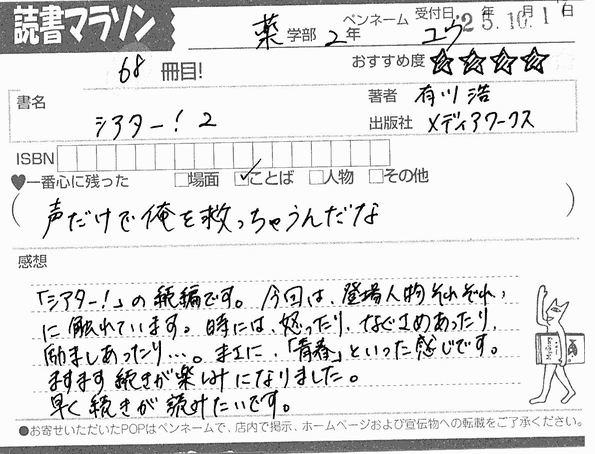 読書マラソン
薬 学部 2 年 ペンネーム ユウ 受付日 '25.10.1 年 月 日
68 冊目! おすすめ度 ☆☆☆☆
書名 シアター!2
著者 有川浩
出版社 メディアワークス
ISBN
♥一番心に残った □場面 ☑ことば □人物 □その他
(声だけで俺を救っちゃうんだな)
感想
「シアター!」の続編です。今回は、登場人物それぞれ
に触れています。時には、怒ったり、なぐさめあったり、
励ましあったり…。まさに、「青春」といった感じです。
ますます続きが楽しみになりました。
早く続きが読みたいです。
●お寄せいただいたPOPはペンネームで、店内で掲示、ホームページおよび宣伝物への転載をご了承ください。